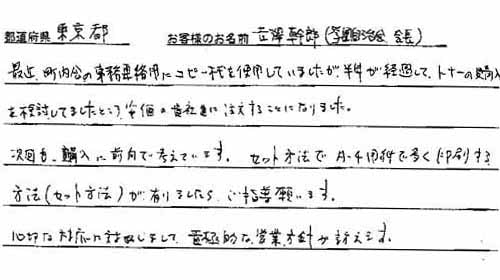 都道府県 東京都 お客様のお名前 幹郎 (会長)
最近、町内会の事務要務用にコピー機を使用していましたが、半年が経過して、トナーの購入
を検討してましたところ、安価の貴社に注文することになりました。
次回も、購入に前向で考えています。 セット方法で A-4用紙で多く印刷する
方法(セット方法)が有りましたら、ご指導願います。
対応に して、積極的な営業方針が